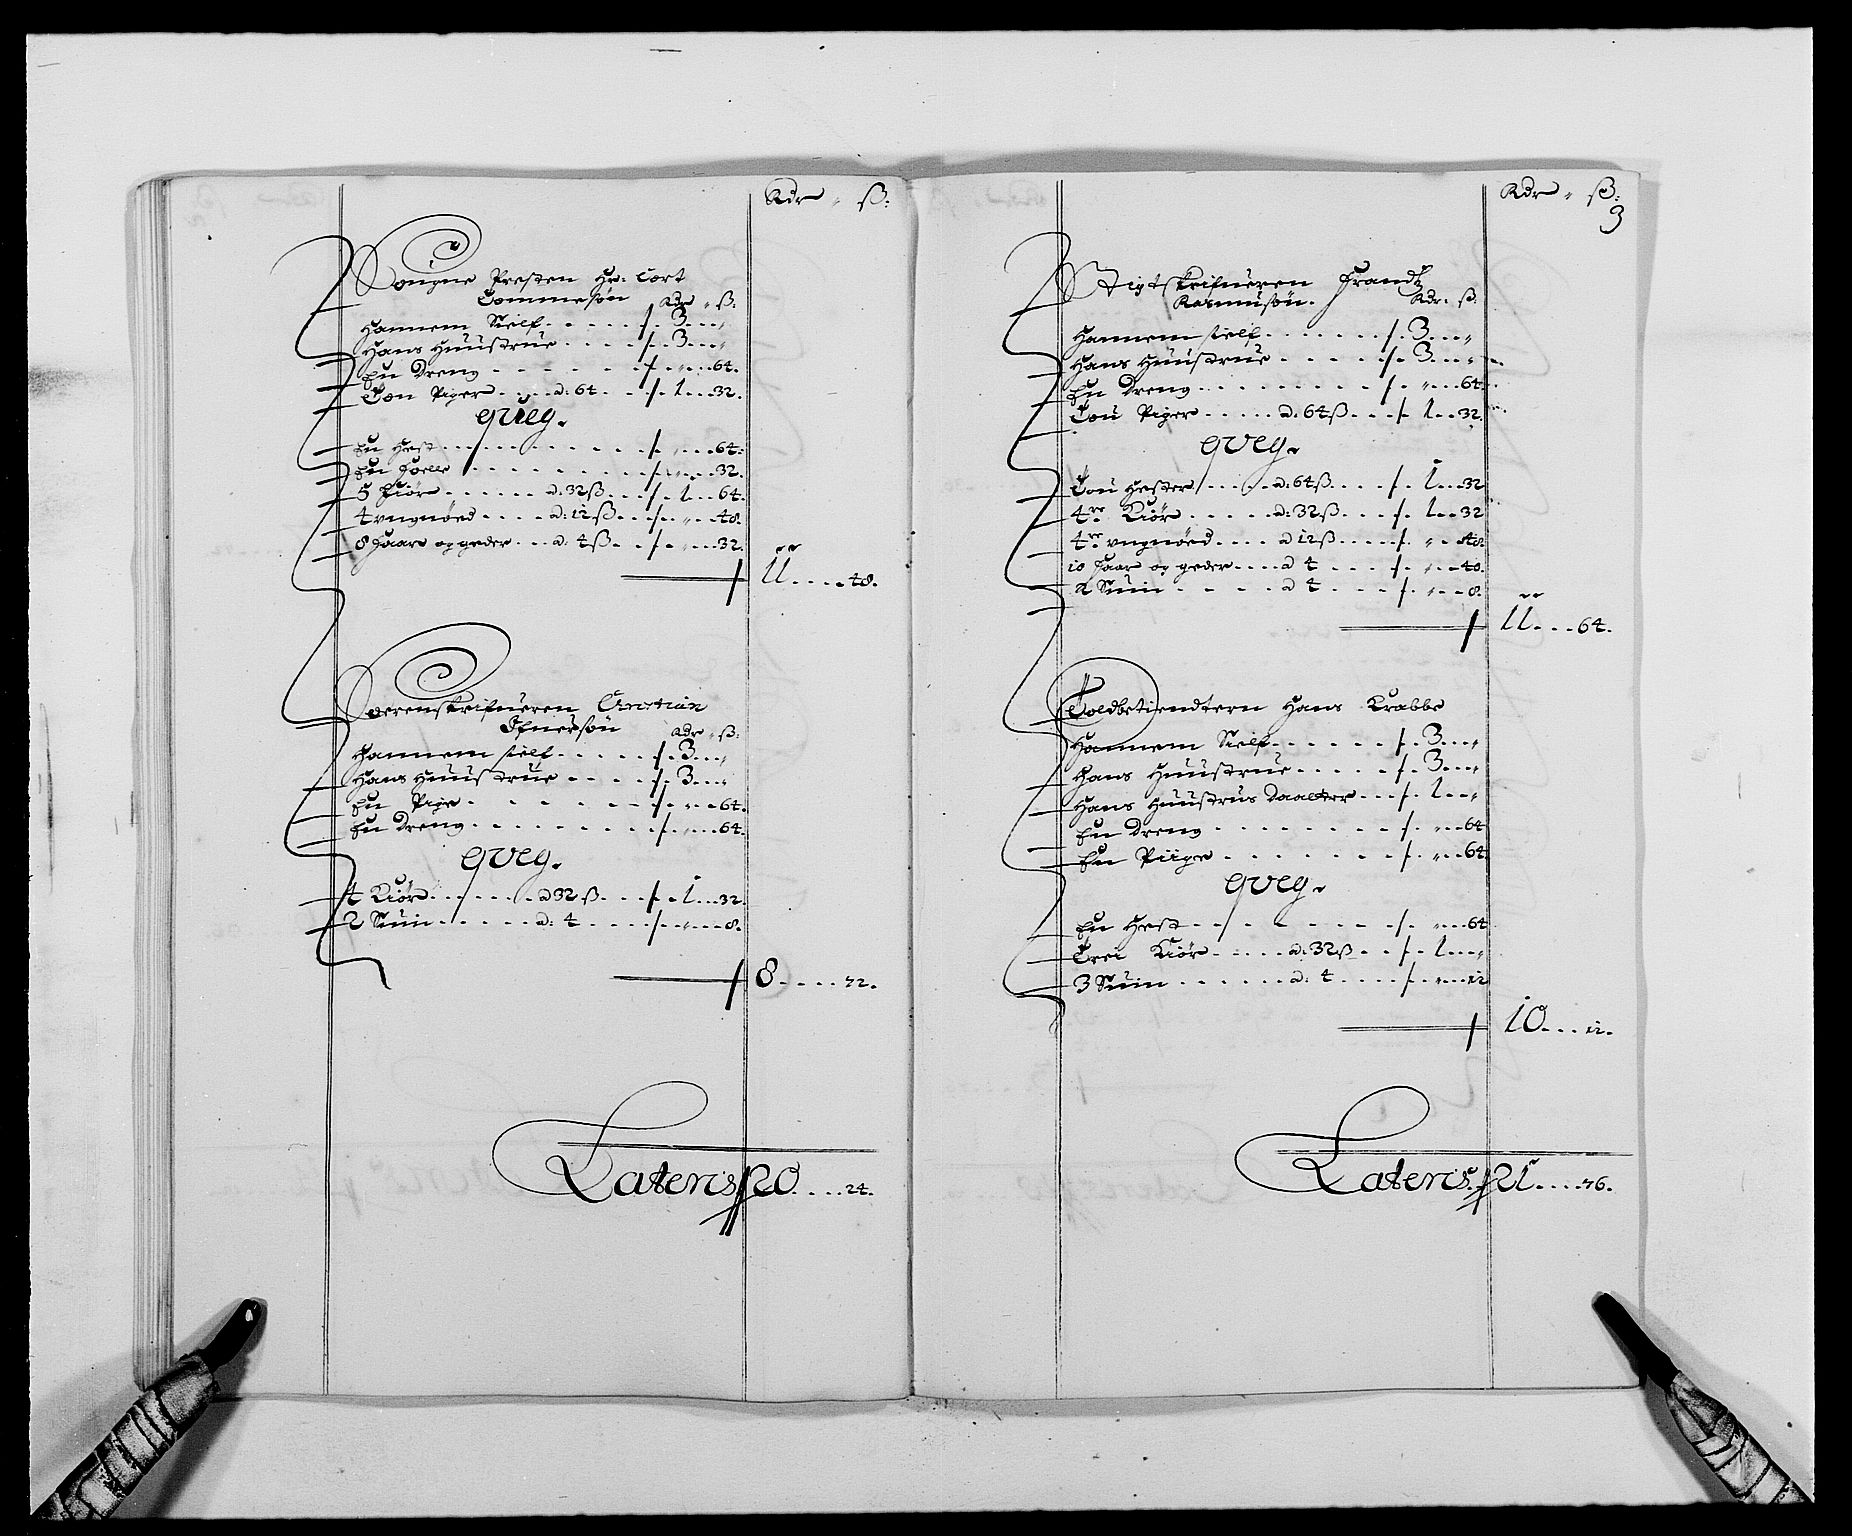 Rdr " ß:
Sougne Presten Hr: Cort
Tommesøn Rdr " ß:
Hannem Sielf - - - - - /. 3 - - "
Hans Huustrue - - - - /. 3 - - "
En Dreng - - - - - - /. " - - 64.
Tou Piger - - - a: 64 - - /. 1 - - 32.
qveg.
En Hest - - - - - - - /. " - - 64.
En Foelle - - - - - - /. " - - 32.
5 Kiør - - - - a: 32 ß - - /. 1 - - 64.
4 ungnøed - - - a: 12 ß - - /. " - - 48.
8 Faar og geder - - a: 4 ß - - /. " - - 32.
/ 11 - - - 48.
Sorenskrifueren Christian
Ifuersøn Rdr " ß:
Hannem sielf - - - - - /. 3 - - "
Hans Huustrue - - - - /. 3 - - "
En Pige - - - - - - /. " - - 64.
En Dreng - - - - - - /. " - - 64.
qveg.
4 Kiør - - - - a 32 ß - - /. 1 - - 32.
2 Suin - - - - a: 4 - - - /. " - - 8.
/ 8 - - - 72.
Lateris / 20 - - - 24.
Rdr " ß:
3
Vigtskrifueren Frandtz
Rasmusøn. Rdr: ß:
Hannem sielf - - - - - /. 3 - - "
Hans Huustrue - - - - /. 3 - - "
En Dreng - - - - - - /. " - - 64
Tou Piger - - - a: 64 ß - - /. 1 - - 32.
qveg.
Tou Hester - - - a: 64 ß - - /. 1 - - 32
4re Kiør - - - - a: 32 ß - - /. 1 - - 32
4re ungnøed - - - a 12 ß - - /. " - - 48.
10 Faar og geder - - a 4 - - /. " - - 40.
2 Suin - - - - a 4 - - - /. " - - 8.
/ 11 - - - 64.
Toldbetiendtern Hans Krabbe
Hannem Sielf - - - - - /. 3 - - "
Hans Huustrue - - - - /. 3 - - "
Hans Huustrus Daatter - - /. 1 - - "
En Dreng - - - - - - /. " - - 64
En Piige - - - - - - /. " - - 64.
qveg.
En Hest - - - - - - - /. " - - 64
Trei Kiør - - - a: 32 ß - - /. 1 - - "
3 Suin - - - - a: 4 - - - /. " - - 12
/ 10 - - - 12.
Lateris / 21 - - - 76.